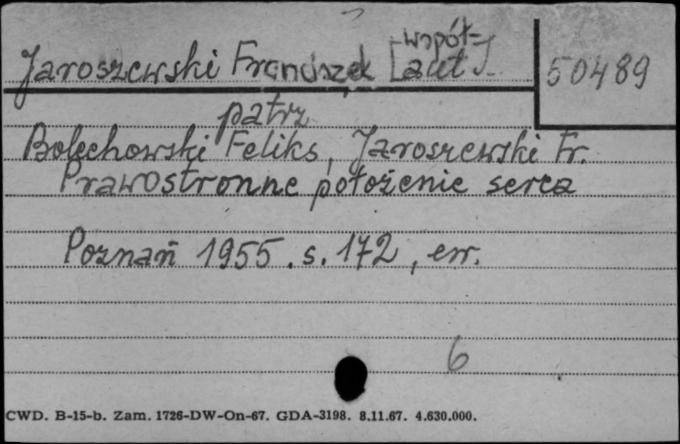 Jaroszewski Franciszek [współ-
aut.]
50489
patrz
Bolechowski Feliks, Jaroszewski Fr.
Prawostronne położenie serca
Poznań 1955. s. 172, err.
6
CWD. B-15-b. Zam. 1726-DW-On-67. GDA-3198. 8.11.67. 4.630.000.